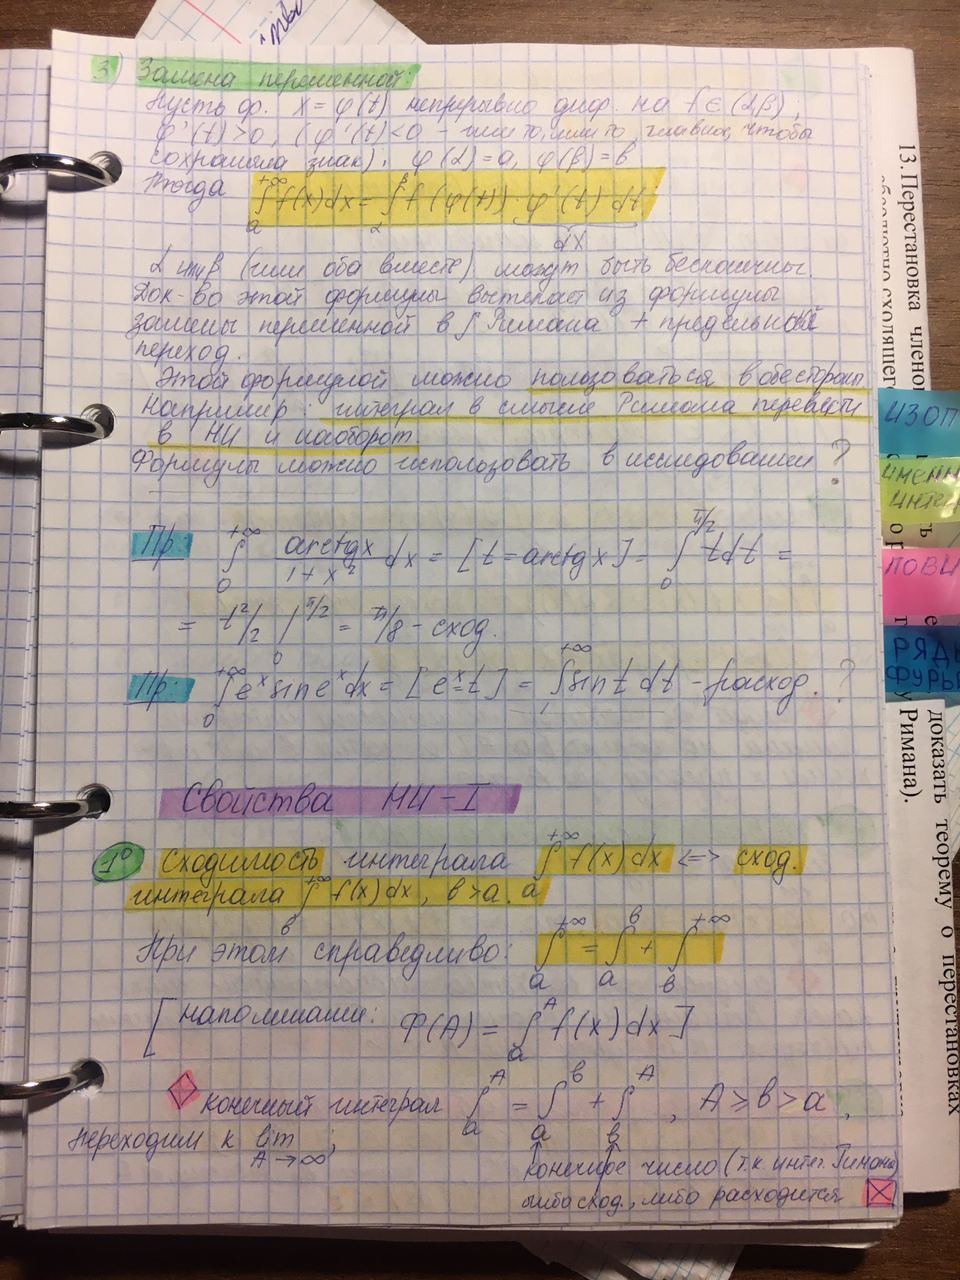 3) Замена переменной:
Пусть ф. x = φ(t) непрерывно диф. на t ∈ (α, β);
φ'(t) > 0, (φ'(t) < 0 – или то, или то, главное, чтобы
сохраняла знак); φ(α) = a, φ(β) = b
Тогда ∫_a^{+∞} f(x)dx = ∫_α^β f(φ(t))·φ'(t) dt
dx
α или β (или оба вместе) могут быть бесконечны.
Док-во этой формулы вытекает из формулы
замены переменной в ∫ Римана + предельный
переход.
Этой формулой можно пользоваться в обе стороны
например: интеграл в смысле Римана перевести
в НИ и наоборот.
Формулы можно использовать в исследовании ?
Пр: ∫_0^{+∞} arctgx/(1+x²) dx = [t = arctg x] = ∫_0^{π/2} t dt =
= t²/2 |_0^{π/2} = π²/8 – сход.
Пр: ∫_0^{+∞} e^x sin e^x dx = [e^x = t] = ∫_1^{+∞} sin t dt – расход. ?
Свойства НИ – I
1° Сходимость интеграла ∫_a^{+∞} f(x)dx <=> сход.
интеграла ∫_b^{+∞} f(x)dx, b > a.
При этом справедливо: ∫_a^{+∞} = ∫_a^b + ∫_b^{+∞}
[напомним: Φ(A) = ∫_a^A f(x)dx]
конечный интеграл ∫_a^A = ∫_a^b + ∫_b^A, A ≥ b > a,
переходим к lim_{A→∞};
конечное число (т.к. интег. Римана)
либо сход., либо расходится
13. Перестановка членов
абсолютно сходящегося
доказать теорему о перестановках
Римана).
ИЗОП
ИНТЕ
НОВИ
РЯДЫ
ФУРЬЕ